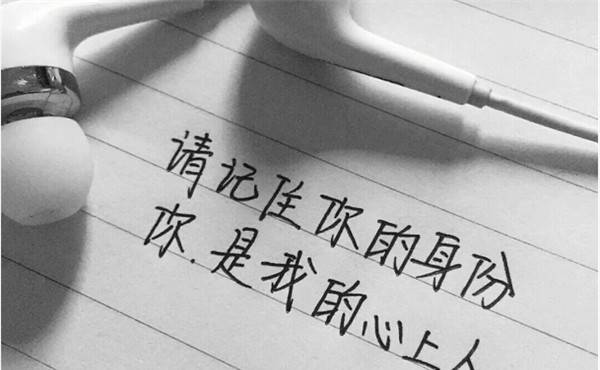 请记住你的身份
你.是我的心上人